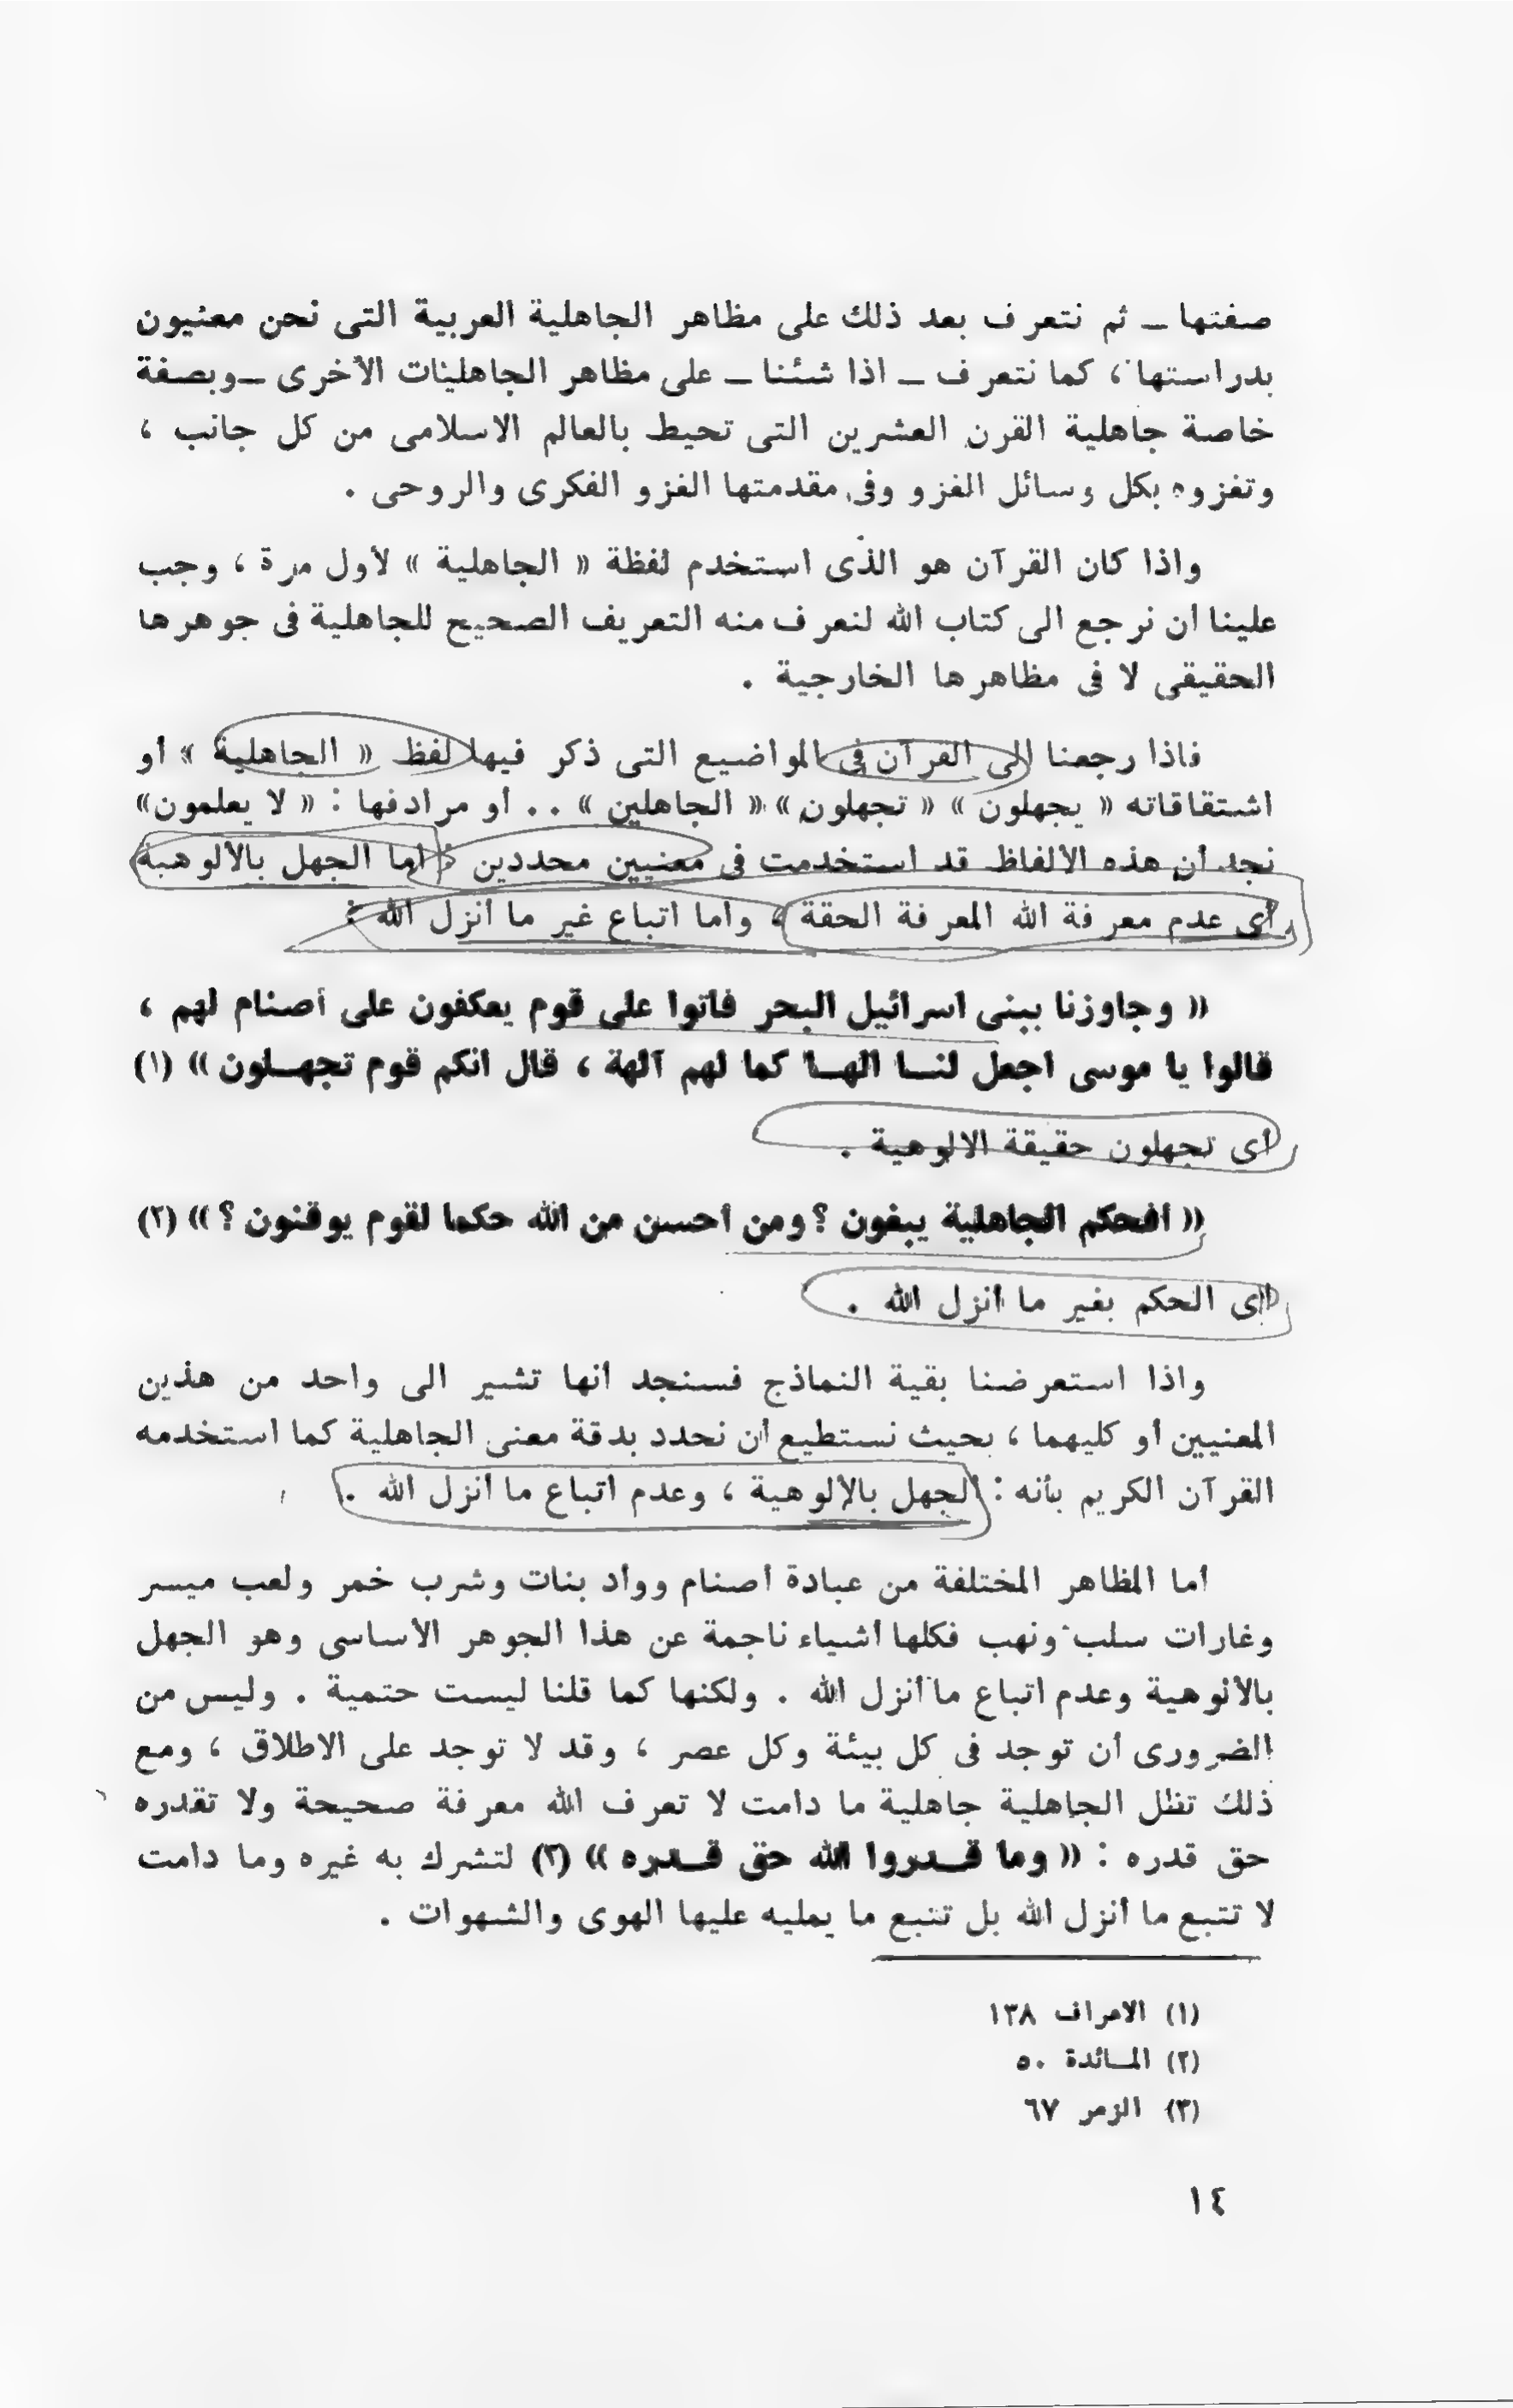 صفتها ــ ثم نتعرف بعد ذلك على مظاهر الجاهلية العربية التى نحن معنيون
بدراستها ، كما نتعرف ــ اذا شئنا ــ على مظاهر الجاهليات الأخرى ــ وبصفة
خاصة جاهلية القرن العشرين التى تحيط بالعالم الاسلامى من كل جانب ،
وتغزوه بكل وسائل الغزو وفى مقدمتها الغزو الفكرى والروحى .
واذا كان القرآن هو الذى استخدم لفظة « الجاهلية » لأول مرة ، وجب
علينا أن نرجع الى كتاب الله لنعرف منه التعريف الصحيح للجاهلية فى جوهرها
الحقيقى لا فى مظاهرها الخارجية .
فاذا رجعنا الى القرآن فى المواضيع التى ذكر فيها لفظ « الجاهلية » أو
اشتقاقاته « يجهلون » « تجهلون » « الجاهلين » . . أو مرادفها : « لا يعلمون »
نجد أن هذه الألفاظ قد استخدمت فى معنيين محددين : اما الجهل بالألوهية
أى عدم معرفة الله المعرفة الحقة ، واما اتباع غير ما أنزل الله :
« وجاوزنا ببنى اسرائيل البحر فأتوا على قوم يعكفون على أصنام لهم ،
قالوا يا موسى اجعل لنــا الهــا كما لهم آلهة ، قال انكم قوم تجهــلون » (١)
أى تجهلون حقيقة الالوهية .
« أفحكم الجاهلية يبغون ؟ ومن أحسن من الله حكما لقوم يوقنون ؟ » (٢)
أى الحكم بغير ما أنزل الله .
واذا استعرضنا بقية النماذج فسنجد أنها تشير الى واحد من هذين
المعنيين أو كليهما ، بحيث نستطيع أن نحدد بدقة معنى الجاهلية كما استخدمه
القرآن الكريم بأنه : الجهل بالألوهية ، وعدم اتباع ما أنزل الله .
أما المظاهر المختلفة من عبادة أصنام ووأد بنات وشرب خمر ولعب ميسر
وغارات سلب ونهب فكلها أشياء ناجمة عن هذا الجوهر الأساسى وهو الجهل
بالألوهية وعدم اتباع ما أنزل الله . ولكنها كما قلنا ليست حتمية . وليس من
الضرورى أن توجد فى كل بيئة وكل عصر ، وقد لا توجد على الاطلاق ، ومع
ذلك تظل الجاهلية جاهلية ما دامت لا تعرف الله معرفة صحيحة ولا تقدره
حق قدره : « وما قــدروا الله حق قــدره » (٣) لتشرك به غيره وما دامت
لا تتبع ما أنزل الله بل تتبع ما يمليه عليها الهوى والشهوات .
(١) الاعراف ١٣٨
(٢) المــائدة ٥٠
(٣) الزمر ٦٧
١٤